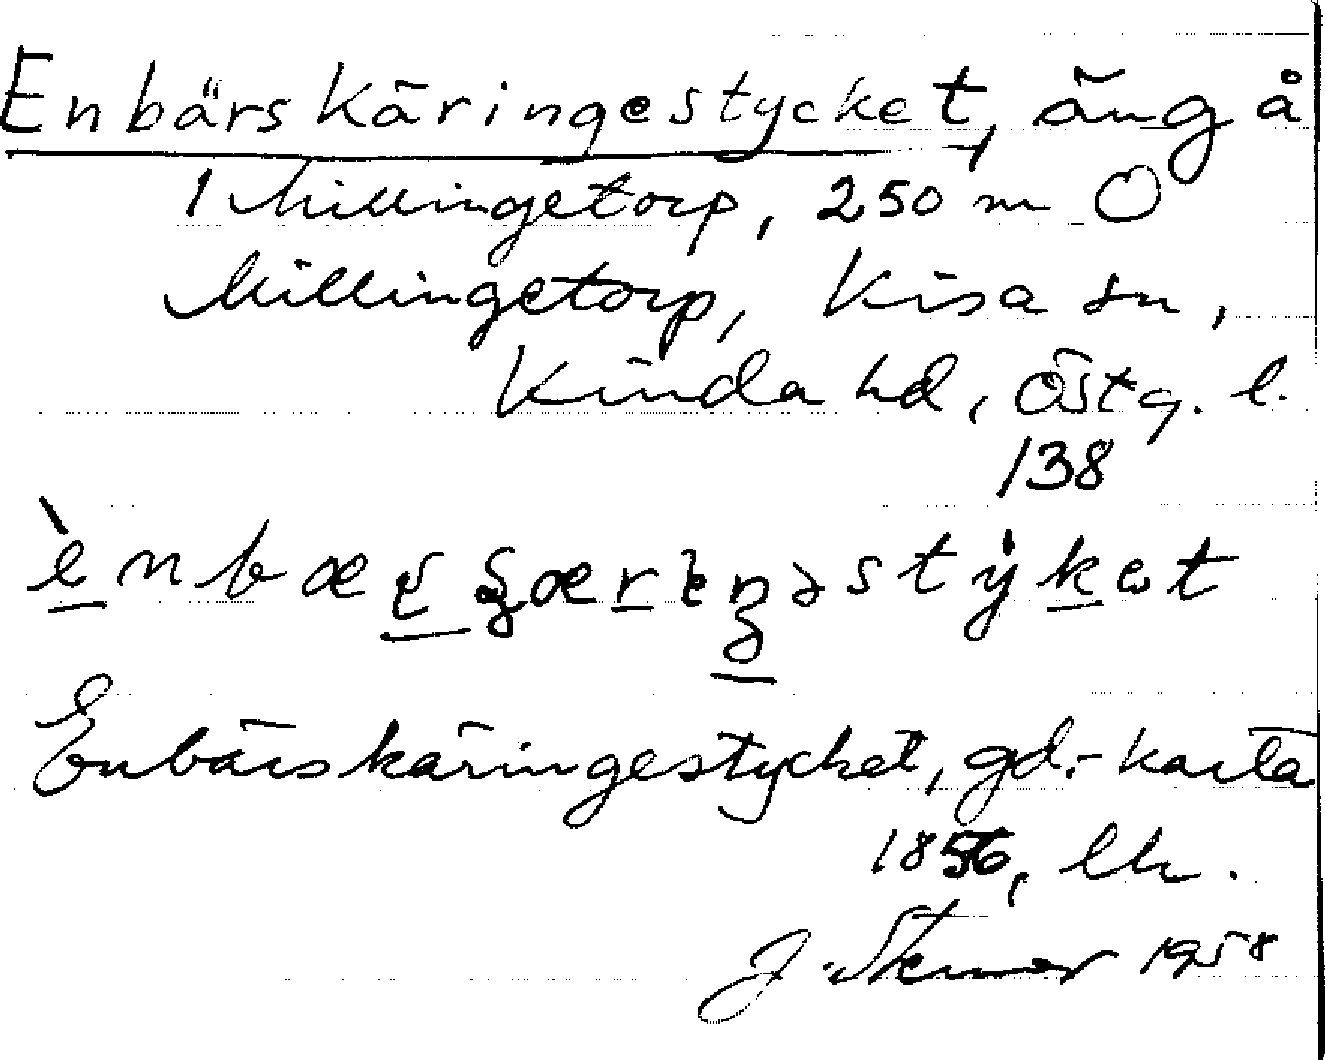 Enbärskäringestycket, äng å
1 Millingetorp, 250 m O
Millingetorp, Kisa sn,
Kinda hd, Östg. l.
138
Enbärskäringestycket, gd.-karta
1856, lk.
J. 1958